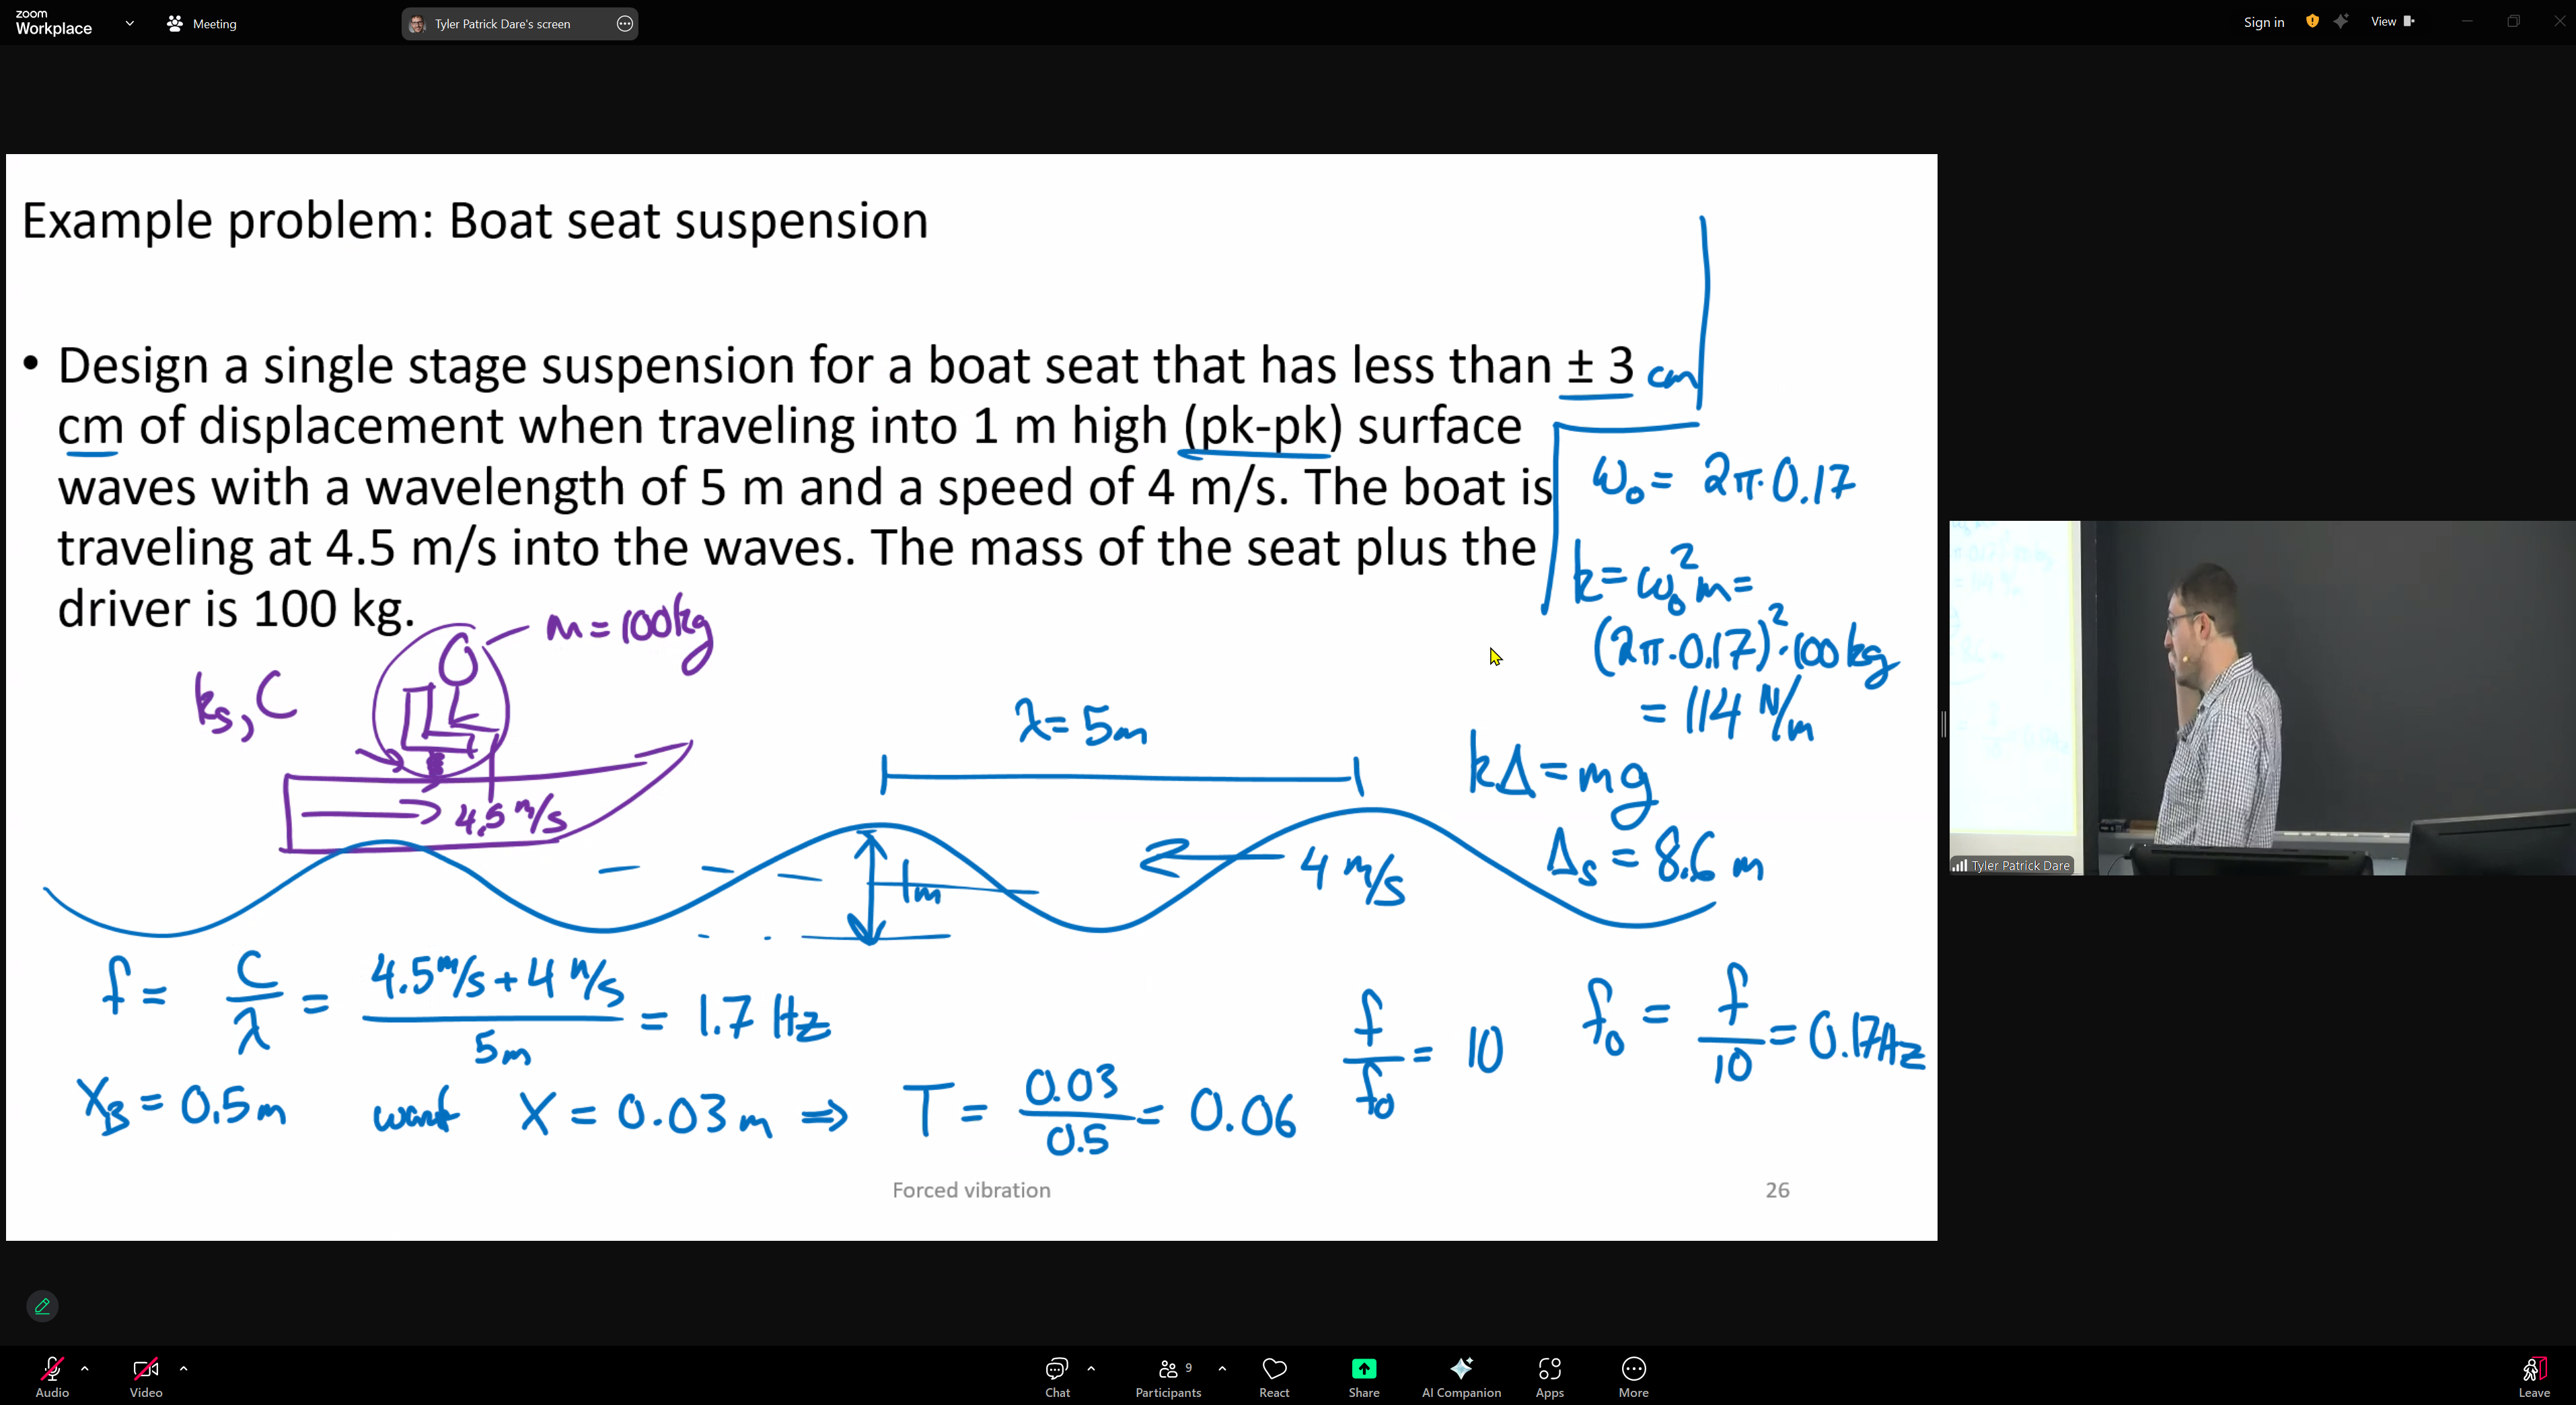 zoom
Workplace
Meeting
Tyler Patrick Dare's screen
Sign in
View
Example problem: Boat seat suspension
• Design a single stage suspension for a boat seat that has less than ± 3 cm
cm of displacement when traveling into 1 m high (pk-pk) surface
waves with a wavelength of 5 m and a speed of 4 m/s. The boat is
traveling at 4.5 m/s into the waves. The mass of the seat plus the
driver is 100 kg.
ω₀ = 2π·0.17
k = ω₀² m =
(2π·0.17)²·100 kg
= 114 N/m
kΔ = mg
Δₛ = 8.6 m
m = 100 kg
kₛ, C
4.5 m/s
λ = 5m
1m
4 m/s
f = C/λ = (4.5 m/s + 4 m/s)/5m = 1.7 Hz
f/f₀ = 10
f₀ = f/10 = 0.17Hz
X_B = 0.5m want X = 0.03 m ⇒ T = 0.03/0.5 = 0.06
Forced vibration
26
Tyler Patrick Dare
Audio
Video
Chat
Participants
9
React
Share
AI Companion
Apps
More
Leave